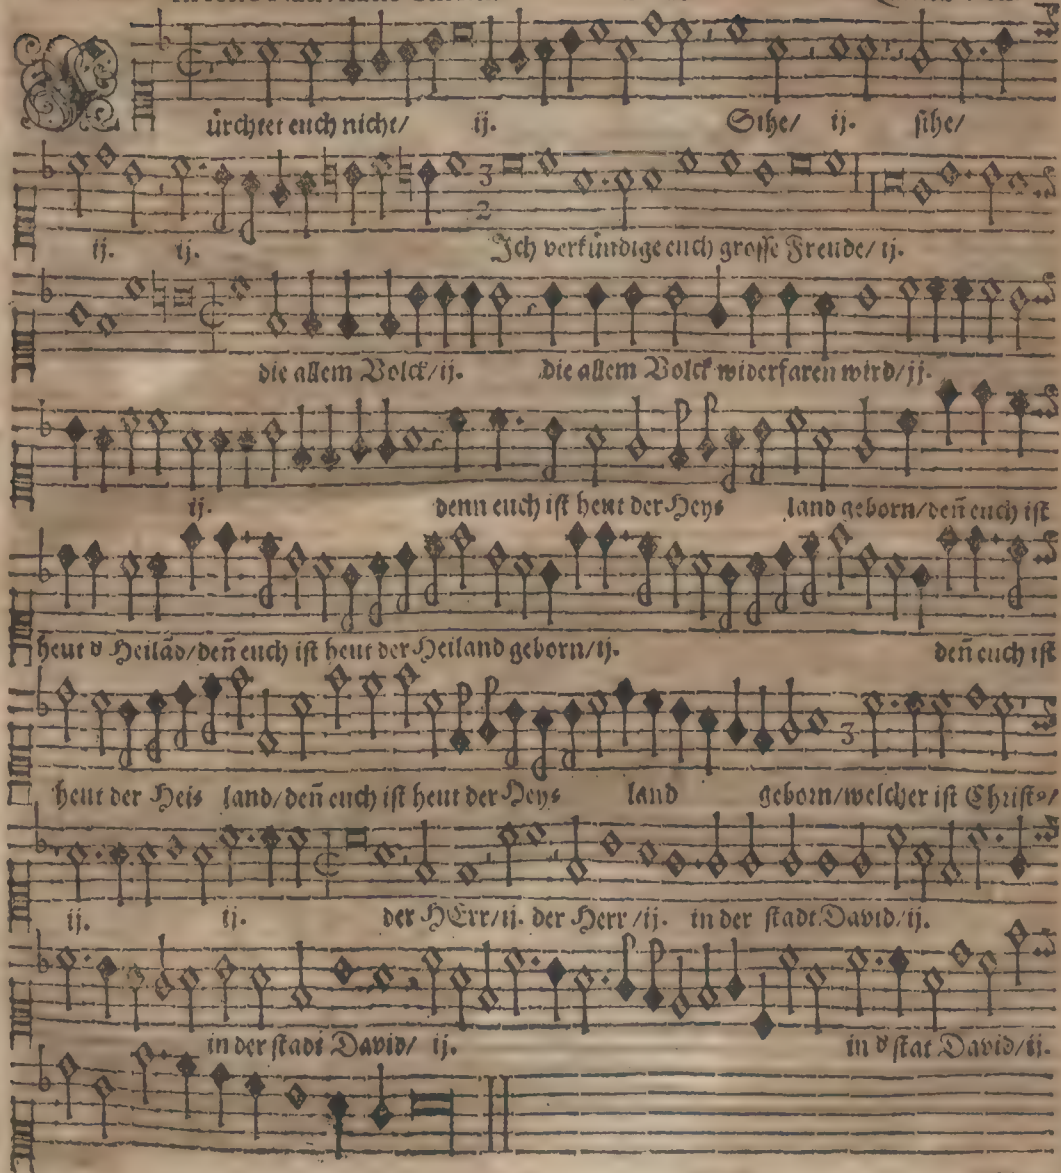 ürchtet euch nicht/ ij. Sihe/ ij. sihe/
ij. ij. Ich verkündige euch grosse Freude/ ij.
die allem Volck/ ij. die allem Volck widerfaren wird/ ij.
ij. denn euch ist heut der Heys land geborn/ den̄ euch ist
heut d Heilād/ den̄ euch ist heut der Heiland geborn/ ij. den̄ euch ist
heut der Heis land/ den̄ euch ist heut der Heys land geborn/ welcher ist Christ⁹/
ij. ij. der HErr/ ij. der Herr/ ij. in der stadt David/ ij.
in der stadt David/ ij. in d stat David/ ij.